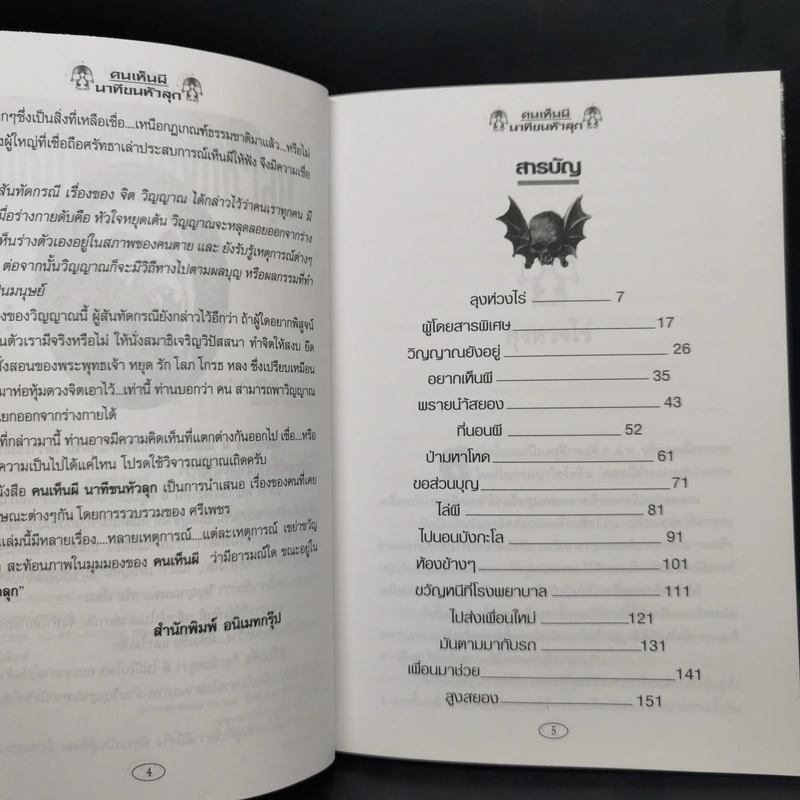 คนเห็นผี
นาทีขนหัวลุก
กๆซึ่งเป็นสิ่งที่เหลือเชื่อ....เหนือกฎเกณฑ์ธรรมชาติมาแล้ว...หรือไม่
งผู้ใหญ่ที่เชื่อถือศรัทธาเล่าประสบการณ์เห็นผีให้ฟัง จึงมีความเชื่อ
สันทัดกรณี เรื่องของ จิต วิญญาณ ได้กล่าวไว้ว่าคนเราทุกคน มี
มื่อร่างกายดับคือ หัวใจหยุดเต้น วิญญาณจะหลุดลอยออกจากร่าง
ห็นร่างตัวเองอยู่ในสภาพของคนตาย และ ยังรับรู้เหตุการณ์ต่างๆ
ต่อจากนั้นวิญญาณก็จะมีวิถีทางไปตามผลบุญ หรือผลกรรมที่ทำ
ป็นมนุษย์
งของวิญญาณนี้ ผู้สันทัดกรณียังกล่าวไว้อีกว่า ถ้าผู้ใดอยากพิสูจน์
นตัวเรามีจริงหรือไม่ ให้นั่งสมาธิเจริญวิปัสสนา ทำจิตให้สงบ ยึด
สั่งสอนของพระพุทธเจ้า หยุด รัก โลภ โกรธ หลง ซึ่งเปรียบเหมือน
มาห่อหุ้มดวงจิตเอาไว้...เท่านี้ ท่านบอกว่า คน สามารถพาวิญญาณ
แยกออกจากร่างกายได้
ที่กล่าวมานี้ ท่านอาจมีความคิดเห็นที่แตกต่างกันออกไป เชื่อ...หรือ
ความเป็นไปได้แค่ไหน โปรดใช้วิจารณญาณเถิดครับ
นังสือ คนเห็นผี นาทีขนหัวลุก เป็นการนำเสนอ เรื่องของคนที่เคย
ษณะต่างๆกัน โดยการรวบรวมของ ศรีเพชร
เล่มนี้มีหลายเรื่อง....หลายเหตุการณ์....แต่ละเหตุการณ์ เขย่าขวัญ
สะท้อนภาพในมุมมองของ คนเห็นผี ว่ามีอารมณ์ใด ขณะอยู่ใน
ัวลุก"
สำนักพิมพ์ อนิเมทกรุ๊ป
4
คนเห็นผี
นาทีขนหัวลุก
สารบัญ
ลุงห่วงไร่ 7
ผู้โดยสารพิเศษ 17
วิญญาณยังอยู่ 26
อยากเห็นผี 35
พรายน้ำสยอง 43
ที่นอนผี 52
ป่ามหาโหด 61
ขอส่วนบุญ 71
ไล่ผี 81
ไปนอนบังกะโล 91
ห้องข้างๆ 101
ขวัญหนีที่โรงพยาบาล 111
ไปส่งเพื่อนใหม่ 121
มันตามมากับรถ 131
เพื่อนมาช่วย 141
สูงสยอง 151
5